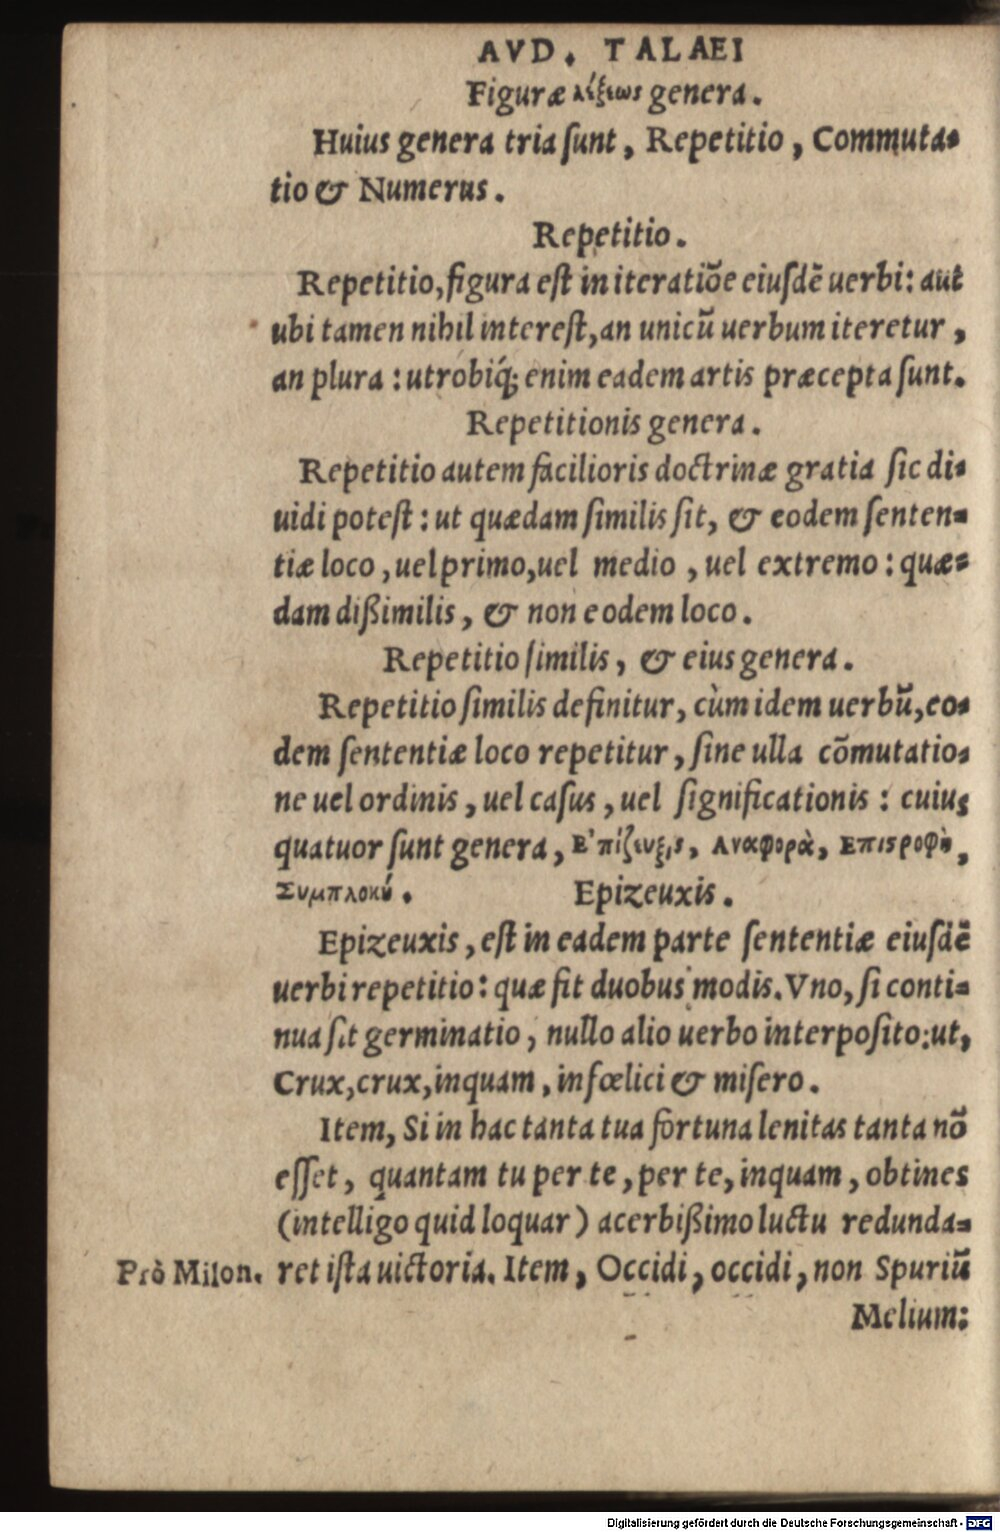 AVD. TALAEI
Figuræ λέξεως genera.
Huius genera tria ſunt, Repetitio, Commuta-
tio & Numerus.
Repetitio.
Repetitio, figura eſt in iteratiõe eiuſdẽ uerbi: aut
ubi tamen nihil intereſt, an unicũ uerbum iteretur,
an plura: utrobiq́; enim eadem artis præcepta ſunt.
Repetitionis genera.
Repetitio autem facilioris doctrinæ gratia ſic di-
uidi poteſt: ut quædam ſimilis ſit, & eodem ſenten-
tiæ loco, uel primo, uel medio, uel extremo: quæ-
dam dißimilis, & non eodem loco.
Repetitio ſimilis, & eius genera.
Repetitio ſimilis definitur, cùm idem uerbũ, eo-
dem ſententiæ loco repetitur, ſine ulla cõmutatio-
ne uel ordinis, uel caſus, uel ſignificationis: cuius
quatuor ſunt genera, Ε᾽πίζευξις, Αναφορὰ, Επιϛροφὴ,
Συμπλοκή. Epizeuxis.
Epizeuxis, eſt in eadem parte ſententiæ eiuſdẽ
uerbi repetitio: quæ fit duobus modis. Vno, ſi conti-
nua ſit germinatio, nullo alio uerbo interpoſito: ut,
Crux, crux, inquam, infœlici & miſero.
Item, Si in hac tanta tua fortuna lenitas tanta nõ
eſſet, quantam tu per te, per te, inquam, obtines
(intelligo quid loquar) acerbißimo luctu redunda-
Prò Milon. ret iſta uictoria. Item, Occidi, occidi, non Spuriũ
Melium:
Digitalisierung gefördert durch die Deutsche Forschungsgemeinschaft - DFG